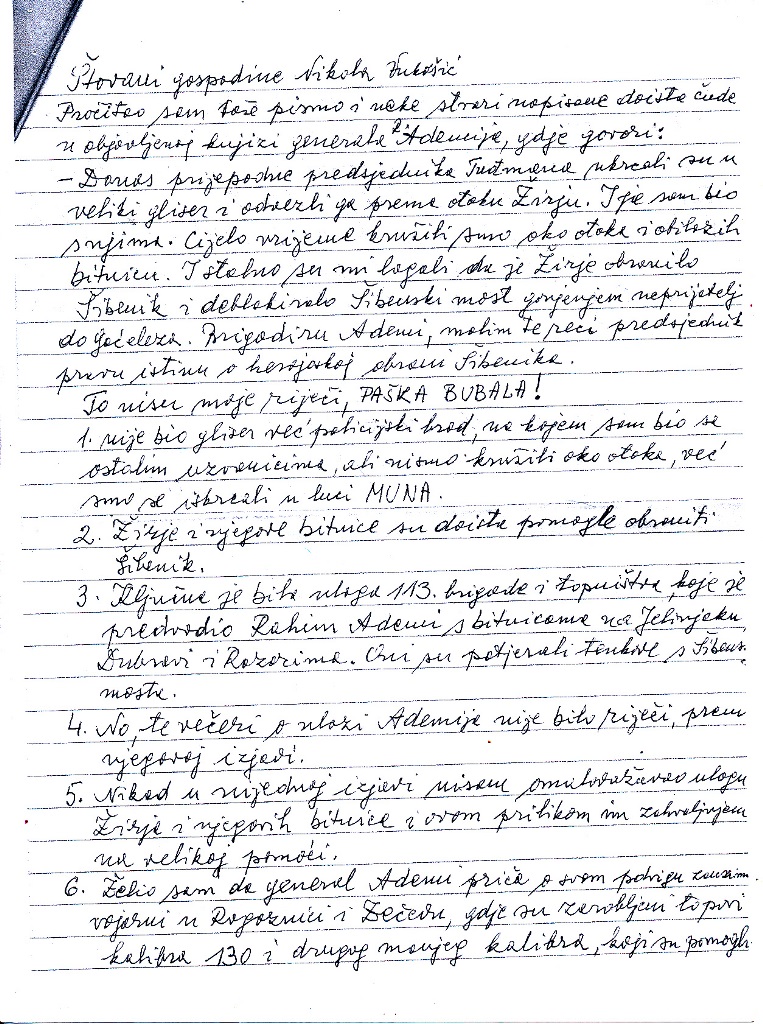 Štovani gospodine Nikola Vukošić
Pročitao sam Vaše pismo i neke stvari napisane doista čude
u objavljenoj knjizi generala Ademija, gdje govori:
– Danas prijepodne predsjednika Tuđmana ukrcali su u
veliki gliser i odvezli ga prema otoku Žirju. I ja sam bio
snjima. Cijelo vrijeme kružili smo oko otoka i obilazili
bitnicu. I stalno su mi lagali da je Žirje obranilo
Šibenik i deblokiralo Šibenski most gonjenjem neprijatelj
do Gaćeleza. Brigadiru Ademi, molim te reci predsjednik
pravu istinu o herojskoj obrani Šibenika.
To nisu moje riječi, PAŠKA BUBALA!
1. nije bio gliser već policijski brod, na kojem sam bio sa
ostalim uzvanicima, ali nismo kružili oko otoka, već
smo se iskrcali u luci MUNA.
2. Žirje i njegove bitnice su doista pomogle obraniti
Šibenik.
3. Ključna je bila uloga 113. brigade i topništva, koje je
predvodio Rahim Ademi s bitnicama na Jelinjaku,
Dubravi i Razorima. Oni su potjerali tenkove s Šibens.
mosta.
4. No, te večeri o ulozi Ademija nije bilo riječi, prem
njegovoj izjavi.
5. Nikad u nijednoj izjavi nisam omalovažavao ulogu
Žirja i njegovih bitnica i ovom prilikom im zahvaljujem
na velikoj pomoći.
6. Želio sam da general Ademi priča o svom podvigu zauzim.
vojarni u Rogoznici i Zečevu, gdje su zarobljeni topovi
kalibra 130 i drugog manjeg kalibra, koji su pomogli